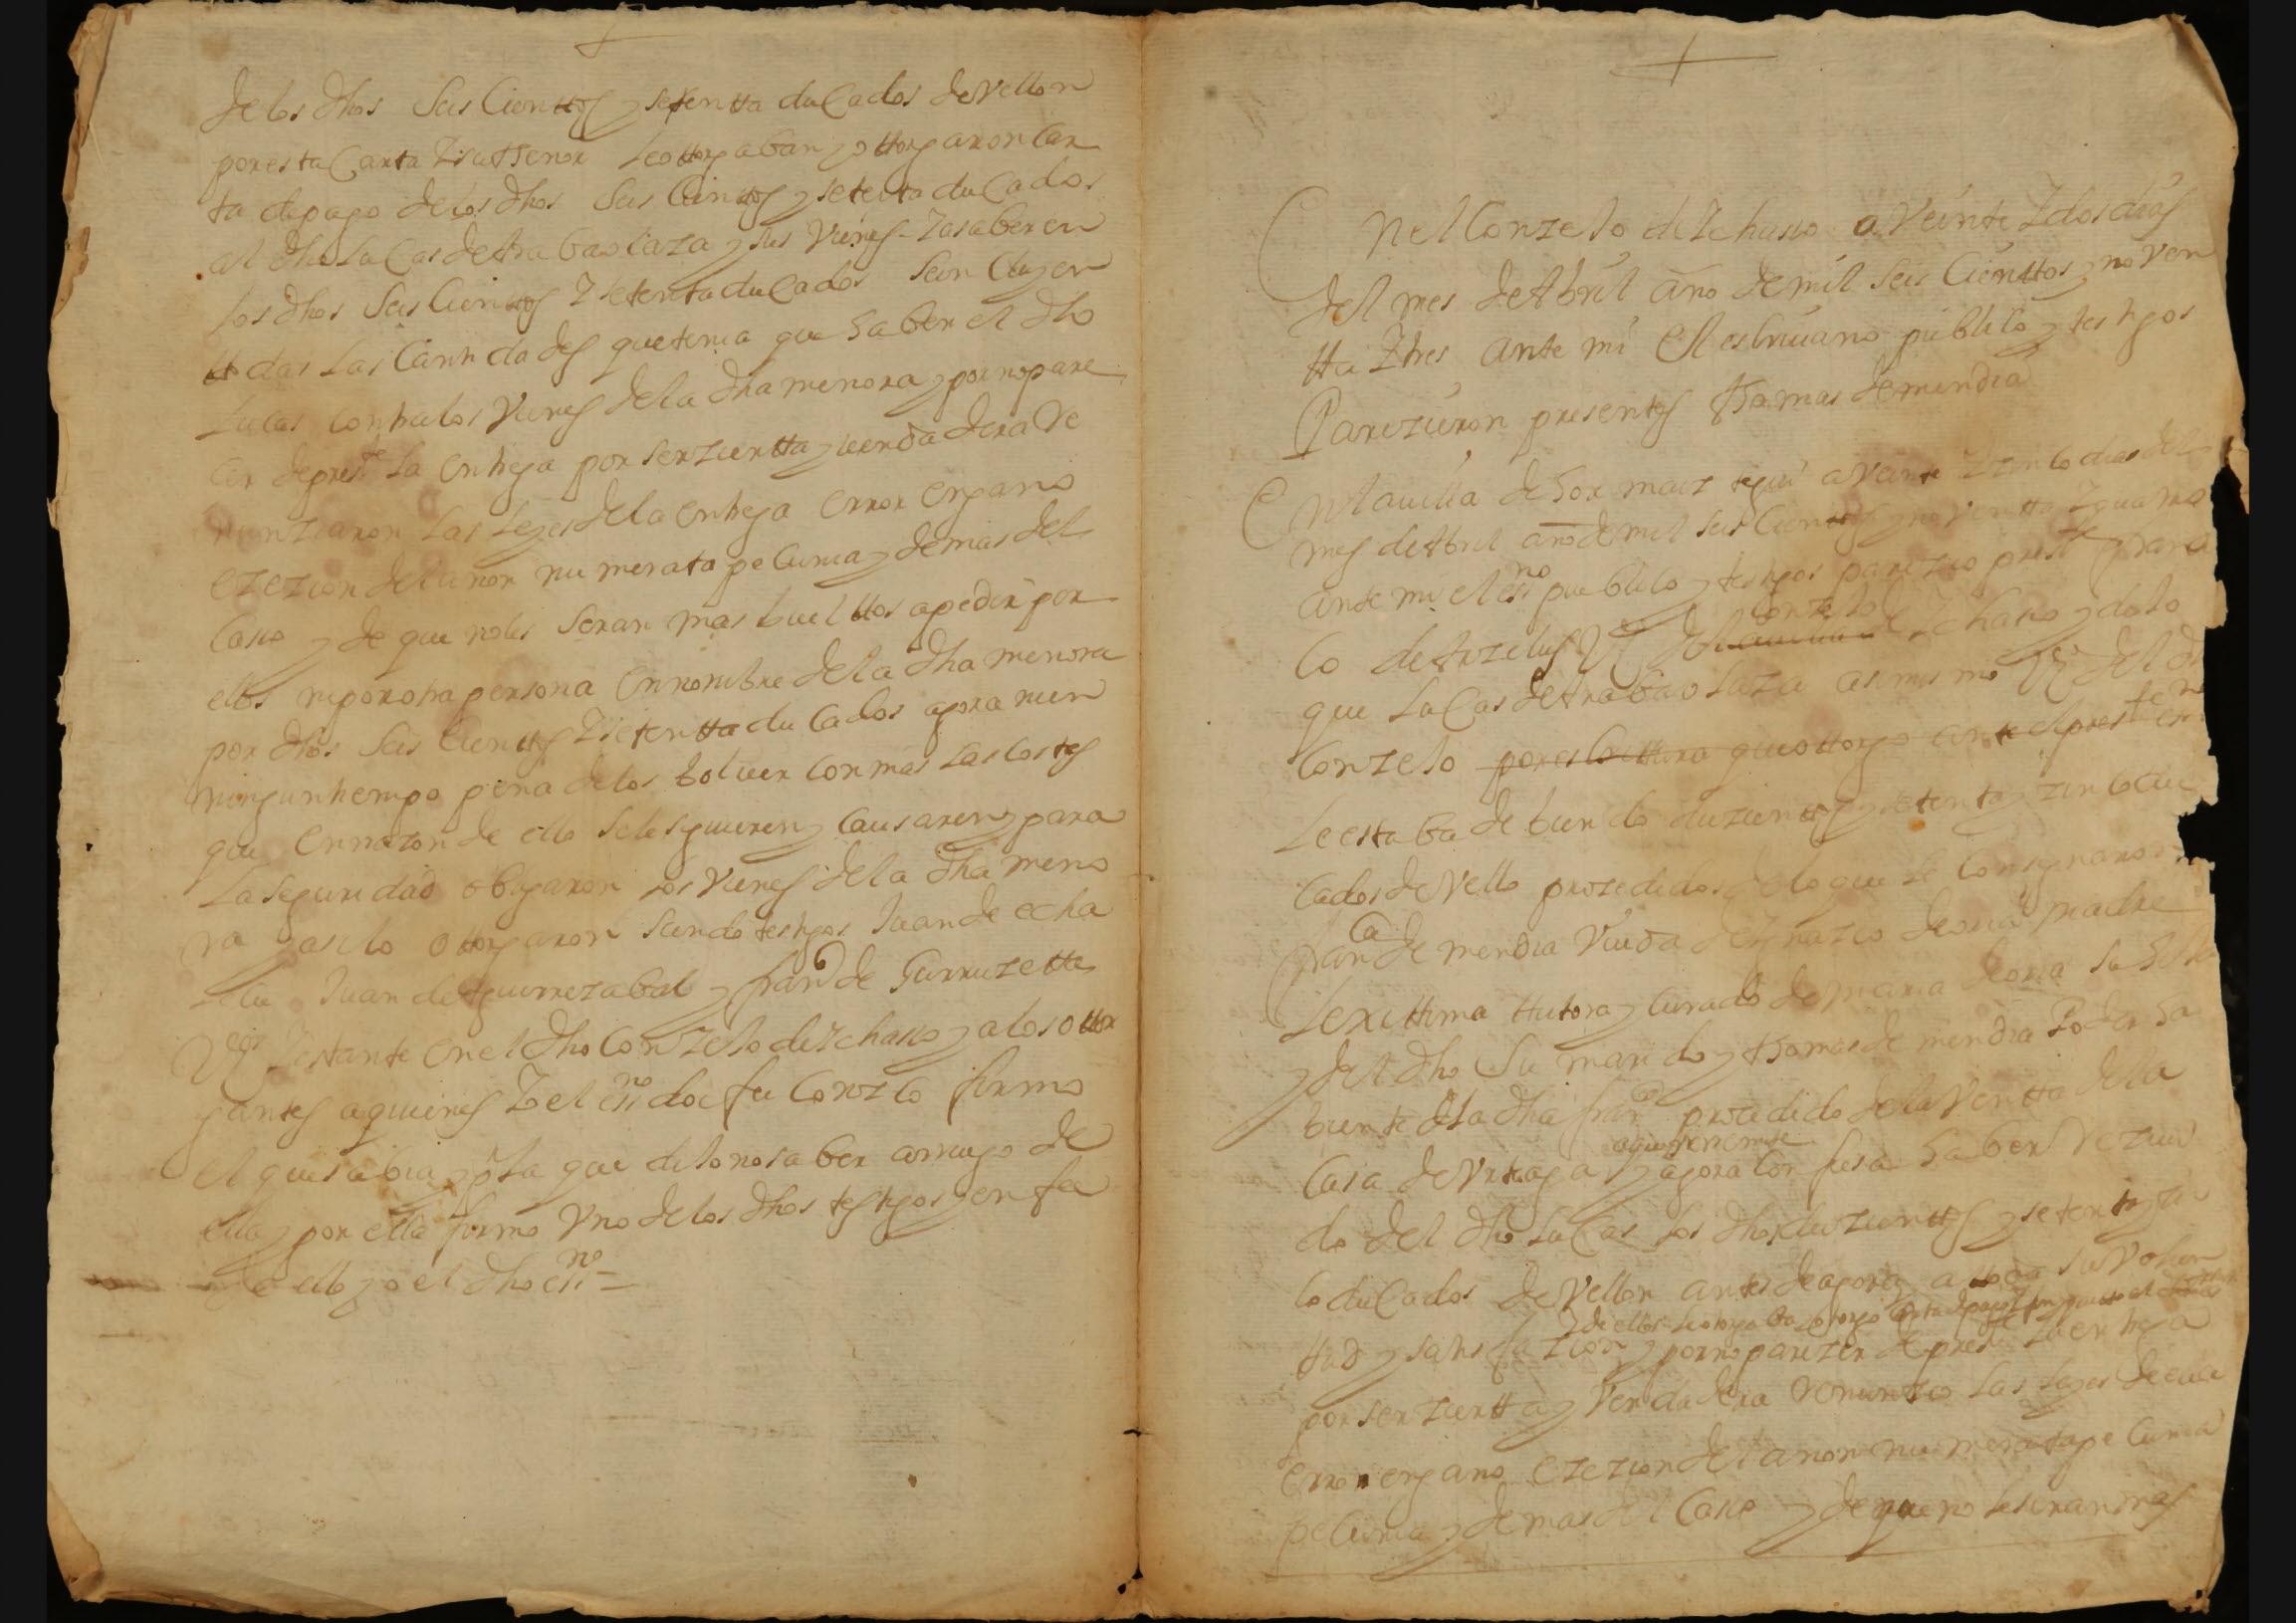 de los dhos Seis Cienttos y setentta duCados de Vellon
por esta Carta Z su thenor le ottorgaban y ottorgaron Car
ta de pago de los dhos Seis Cienttos y setenta duCados
al dho LuCas de Arabaolaza y sus Vienes - Z a saber en
los dhos Seis Cienttos Z setenta duCados se inCluyen
ttodas las Canttidades que tenia que haber el dho
Lucas contra los Vienes de la dha menora y por no pare
cer de presте la entrega por ser Ziertta y verdadera Re
nunZiaron las leyes de la entrega error engano
eZeZion de la non numerata peCunia y demas del
Caso y de que no les seran mas bueltos a pedir por
ellos ni por otra persona en nombre de la dha menora
por dhos Seis Cienttos Z setentta duCados agora ni en
ningun tiempo pena de los bolver con mas las costas
que en razon de ello se les siguieren y Causaren y para
la seguridad obligaron los Vienes de la dha meno
ra y asi lo ottorgaron siendo testigos Juan de echa
Juan de Aguirrezabal y franco de GurruZetta
Vos Z estante en el dho ConZejo de Ychaso y a los ottor
gantes a quienes Z el essno doi fee ConozCo firmo
el que sabia y por la que dijo no saber a ruego de
ella y por ella firmo Vno de los dhos testigos y en fee
de ello yo el dho essno =
En el ConZejo de Ychaso a Veinte Z dos dias
del mes de Abril año de mil seis Cienttos y noven
tta Z tres ante mi el escrivano publico y testigos
PareZieron presentes thomas de mendia
En la villa de hormaiztegui a Veinte Z zinco dias del
mes de Abril año de mil seis Cienttos y noventta Z quatro
ante mi el essno publico y testigos pareZio preste fran
co de ArZelus Vo del conZejo de Ychaso y dijo
que LuCas de Arabaolaza asimismo Vo del dho
ConZejo por escrittura que ottorgo ante el preste essno
le estaba debiendo duZienttos y setenta y zinco du
Cados de Vello proZedidos de lo que le Consignaron
franca de mendia Viuda de YgnaZio de oria madre
lexittima tutora y curadora de maria de oria su hija
y del dho su marido y thomas de mendia Poder ha
biente de la dha franca proZedido de la Ventta de la
Casa de Vrteaga y agora Confiesa haber ReZivi
do del dho LuCas los dhos duZienttos y setenta y zin
co duCados de Vellon antes de agora a ttoda su Volun
ttad y satisfaZion y por no pareZer de preste la entrega
por ser Ziertta y Verdadera renunZio las leyes de ella
error engano eZeZion de la non numerata peCunia
peCunia y demas del Caso y de que no le seran mas